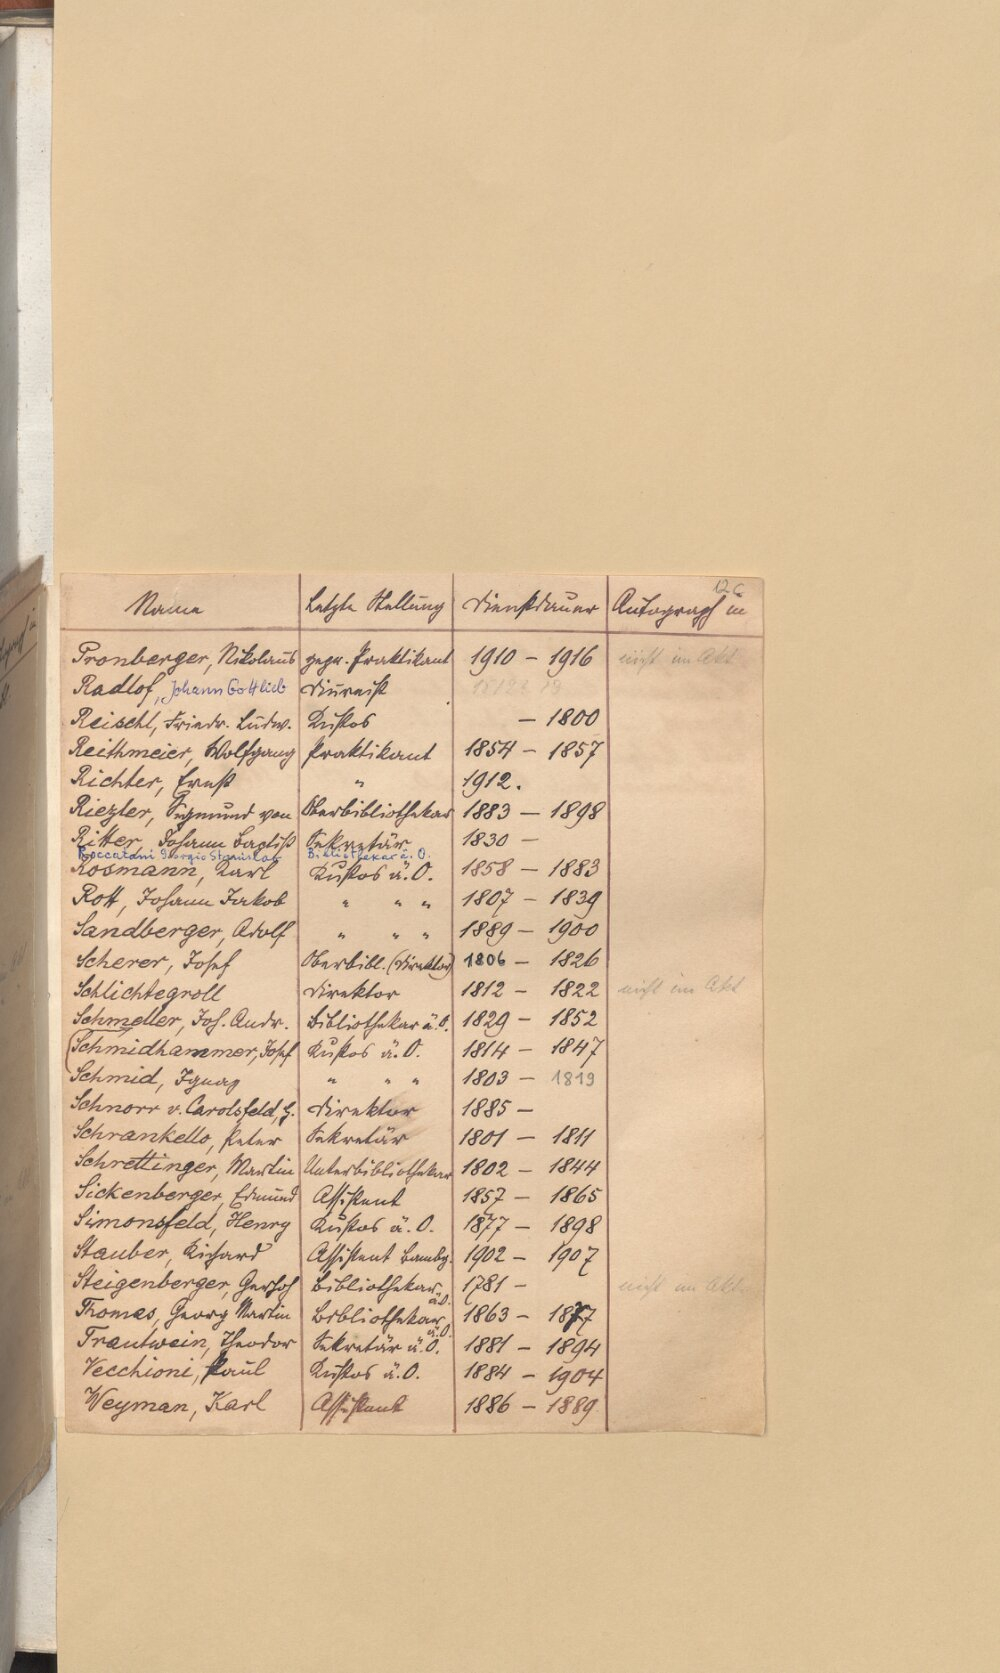 12c
Name Letzte Stellung Dienstdauer Autograph in
Pronberger, Nikolaus gepr. Praktikant 1910 – 1916 nicht im Akt
Radlof, Johann Gottlieb Diurnist
Reischl, Friedr. Ludw. Kustos – 1800
Reithmeier, Wolfgang Praktikant 1854 – 1857
Richter, Ernst " 1912.
Riezler, Sigmund von Oberbibliothekar 1883 – 1898
Ritter, Johann Baptist Sekretär 1830 –
Roccatani Giorgio Stanislao Bibliothekar ä. O.
Rosmann, Karl Kustos ä. O. 1858 – 1883
Rott, Johann Jakob " " " 1807 – 1839
Sandberger, Adolf " " " 1889 – 1900
Scherer, Josef Oberbibl. (Direktor) 1806 – 1826
Schlichtegroll Direktor 1812 – 1822 nicht im Akt
Schmeller, Joh. Andr. Bibliothekar ä. O. 1829 – 1852
Schmidhammer, Josef Kustos ä. O. 1814 – 1847
Schmid, Ignaz " " " 1803 – 1819
Schnorr v. Carolsfeld, H. Direktor 1885 –
Schrankello, Peter Sekretär 1801 – 1811
Schrettinger, Martin Unterbibliothekar 1802 – 1844
Sickenberger, Edmund Assistent 1857 – 1865
Simonsfeld, Henry Kustos ä. O. 1877 – 1898
Stauber, Richard Assistent Bambg. 1902 – 1907
Steigenberger, Gerhoh Bibliothekar ä. O. 1781 – nicht im Akt
Thomas, Georg Martin Bibliothekar ä. O. 1863 – 1877
Trautwein, Theodor Sekretär ä. O. 1881 – 1894
Vecchioni, Paul Kustos ä. O. 1884 – 1904
Weyman, Karl Assistent 1886 – 1889